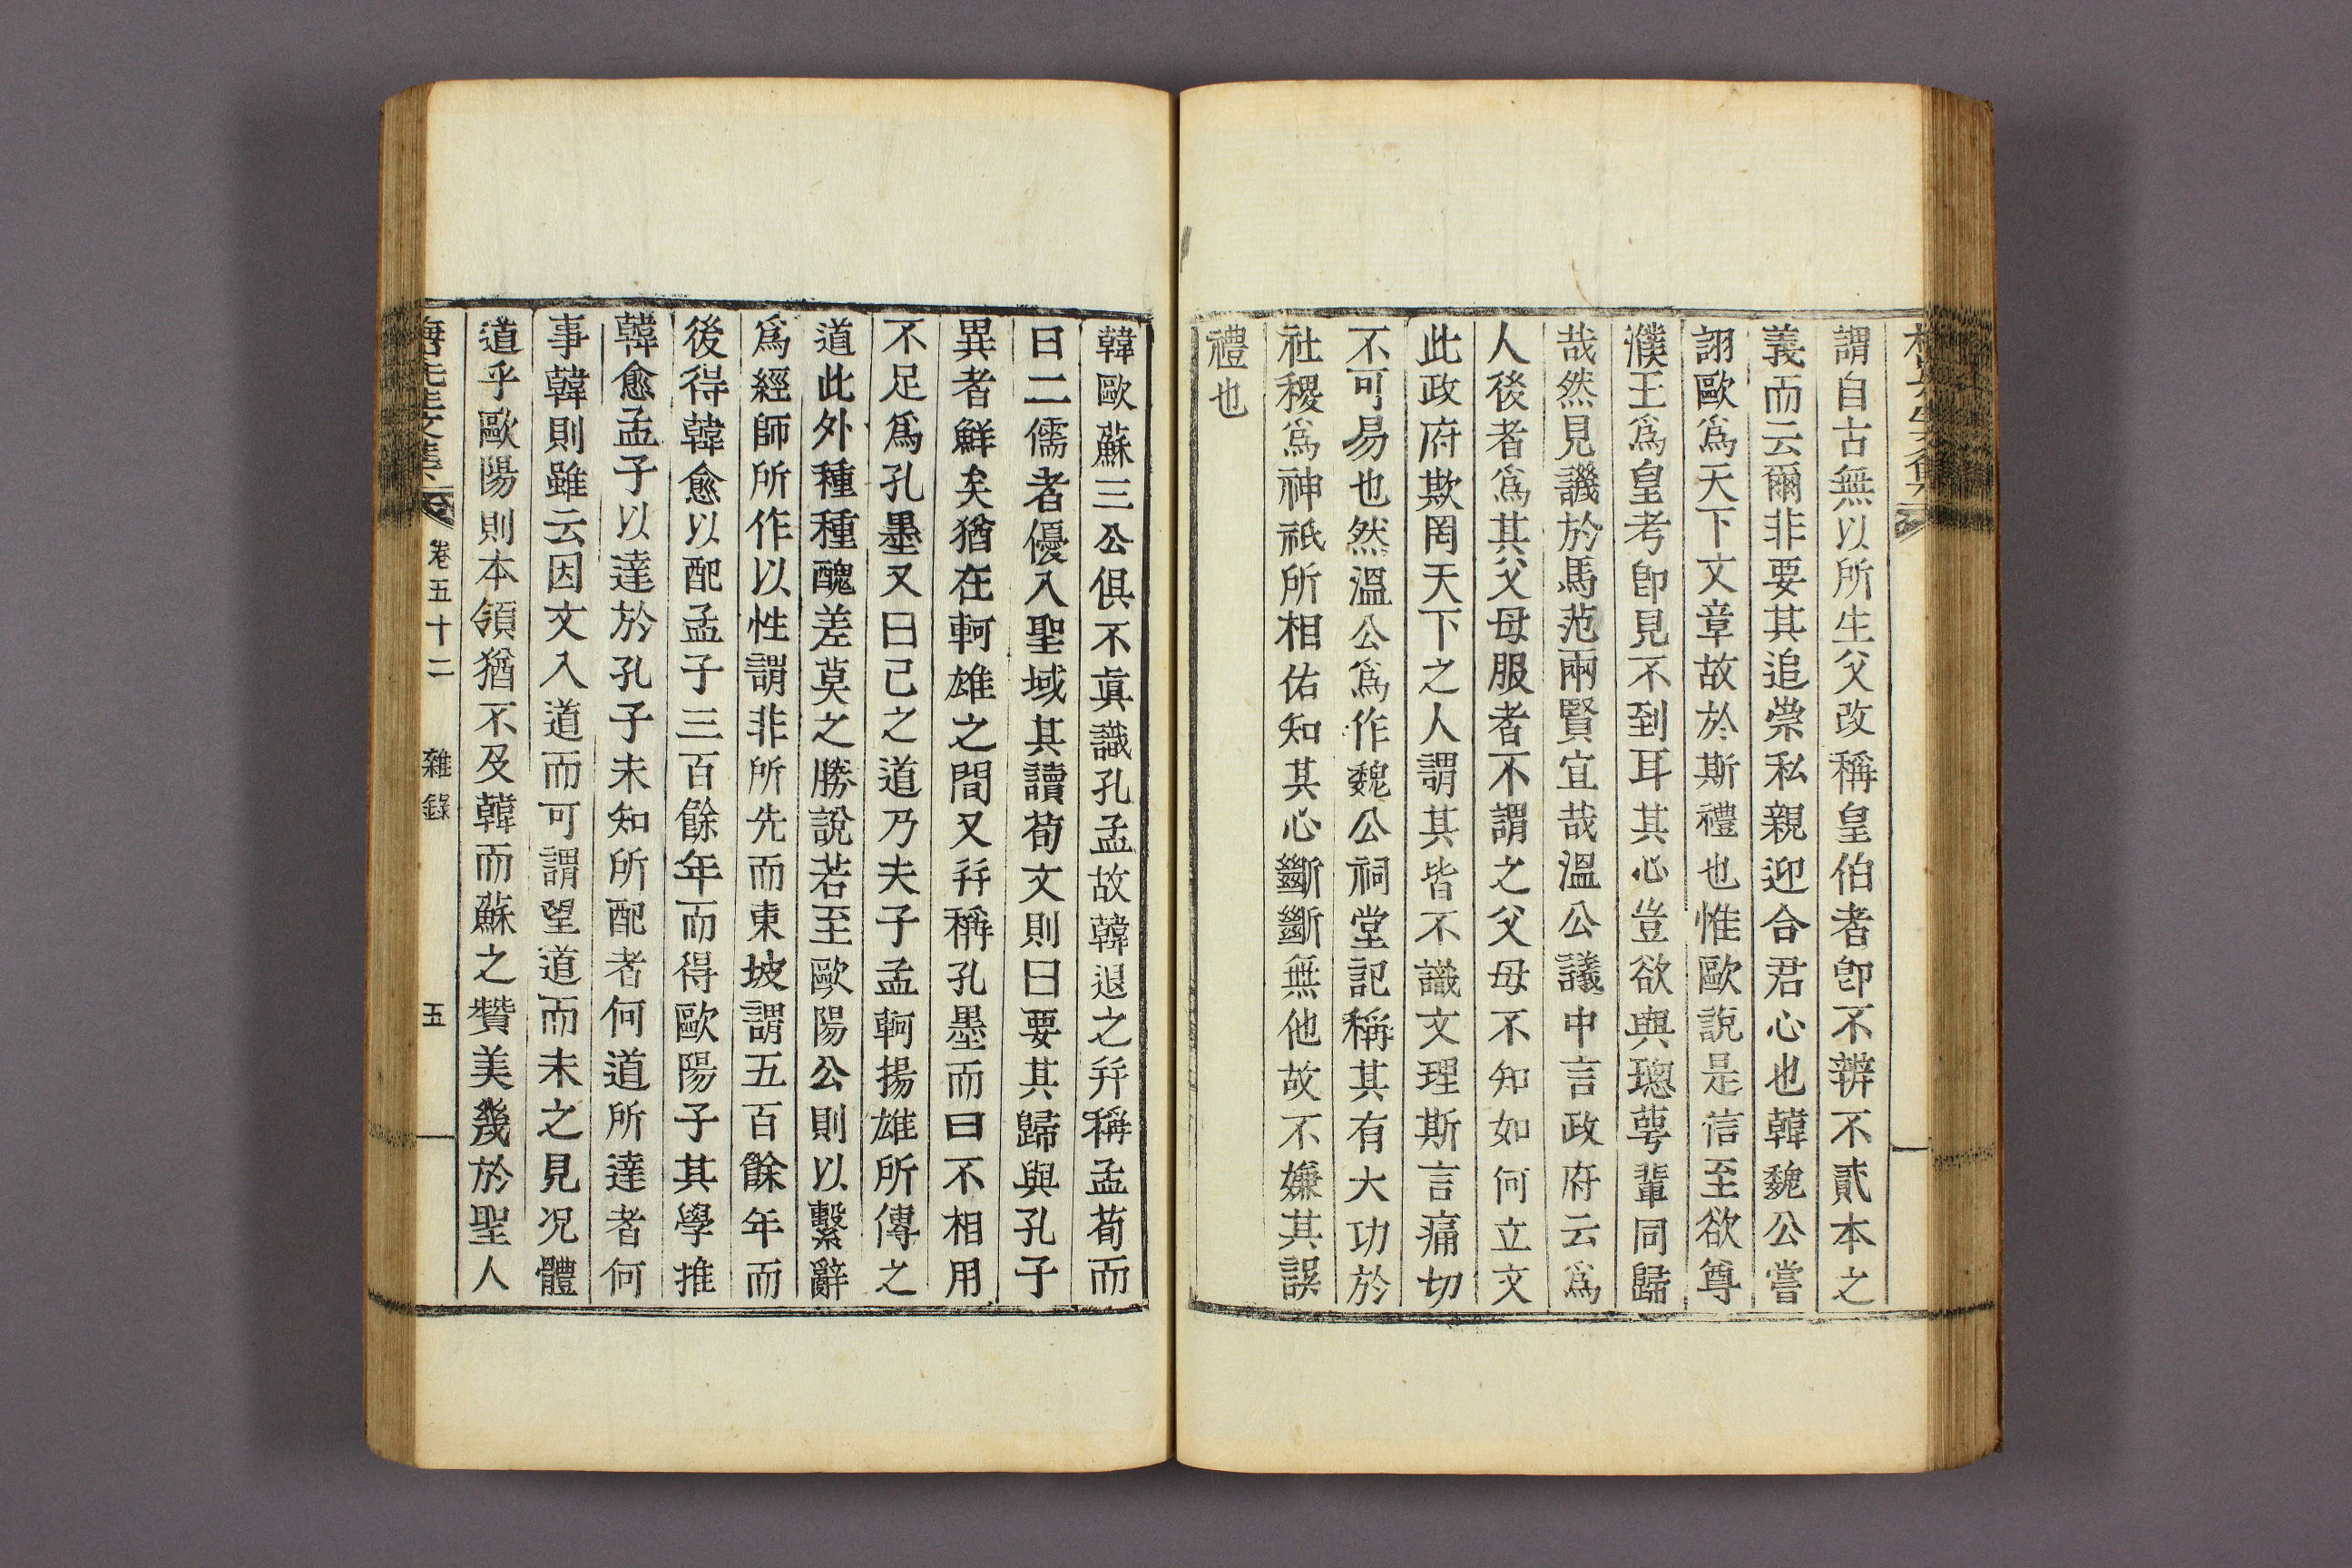 謂自古無以所生父改稱皇伯者卽不辨不貳本之
義而云爾非要其追崇私親迎合君心也韓魏公嘗
詡歐爲天下文章故於斯禮也惟歐說是信至欲尊
濮王爲皇考卽見不到耳其心豈欲與璁蕚輩同歸
哉然見譏於馬范兩賢宜哉溫公議中言政府云爲
人後者爲其父母服者不謂之父母不知如何立文
此政府欺罔天下之人謂其皆不識文理斯言痛切
不可易也然溫公爲作魏公祠堂記稱其有大功於
社稷爲神祇所相佑知其心斷斷無他故不嫌其誤
禮也
韓歐蘇三公俱不眞識孔孟故韓退之幷稱孟荀而
曰二儒者優入聖域其讀荀文則曰要其歸與孔子
異者鮮矣猶在軻雄之間又幷稱孔墨而曰不相用
不足爲孔墨又曰己之道乃夫子孟軻揚雄所傳之
道此外種種醜差莫之勝說若至歐陽公則以繫辭
爲經師所作以性謂非所先而東坡謂五百餘年而
後得韓愈以配孟子三百餘年而得歐陽子其學推
韓愈孟子以達於孔子未知所配者何道所達者何
事韓則雖云因文入道而可謂望道而未之見况體
道乎歐陽則本領猶不及韓而蘇之贊美幾於聖人
卷五十二 雜錄 五